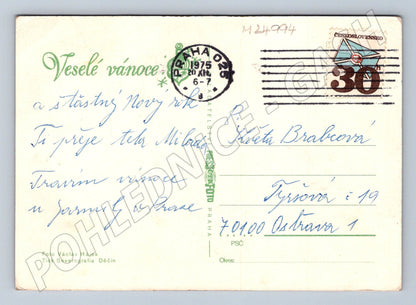 M24994
Veselé vánoce
PRAHA 025
1975
XII.
6-7
a
ČESKOSLOVENSKO
30
a šťastný Nový rok
Ti přeje teta Milada
Trávím vánoce
u Jarmily v Praze
Květa Brabcová
Tyršova č 19
70100 Ostrava 1
PSČ
Okres:
PRAHA
Foto Václav Hájek
Tisk Severografia Děčín
POHLEDNICE - GACH